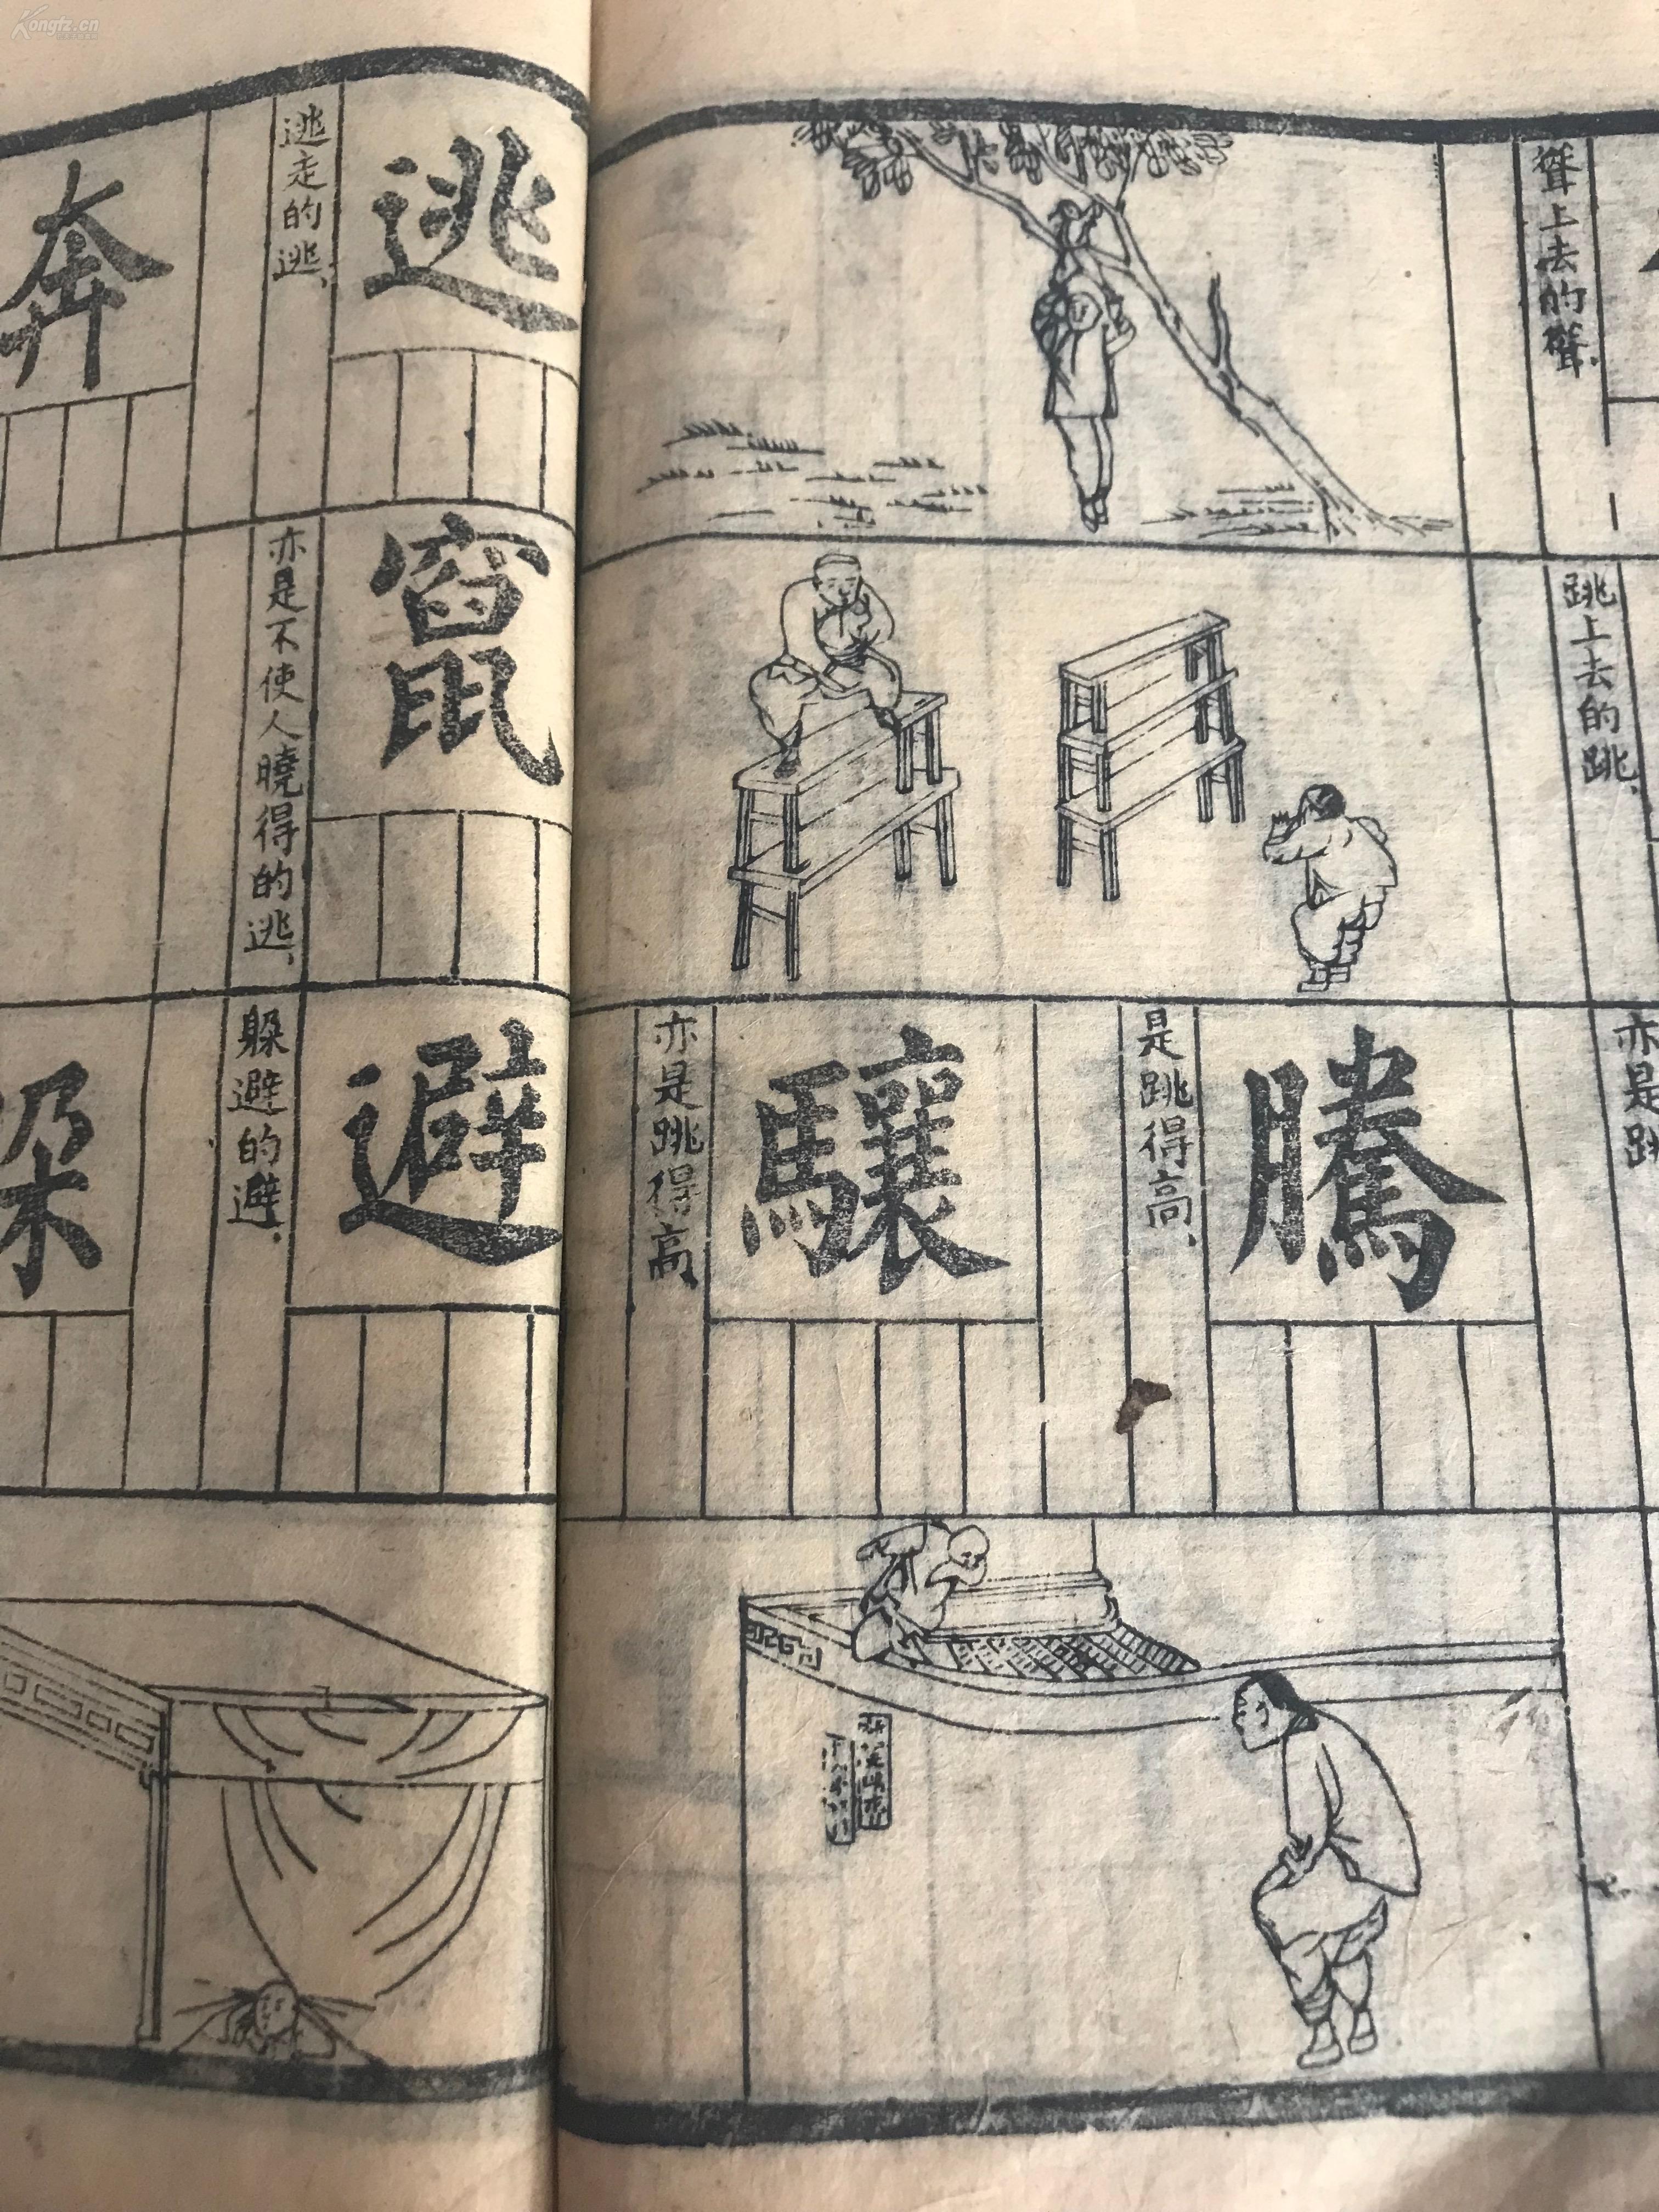 Kongfz.cn
聳上去的聳、
跳上去的跳、
亦是跳
騰
是跳得高、
驤
亦是跳得高
逃
逃走的逃、
竄
亦是不使人曉得的逃、
避
躲避的避、
奔